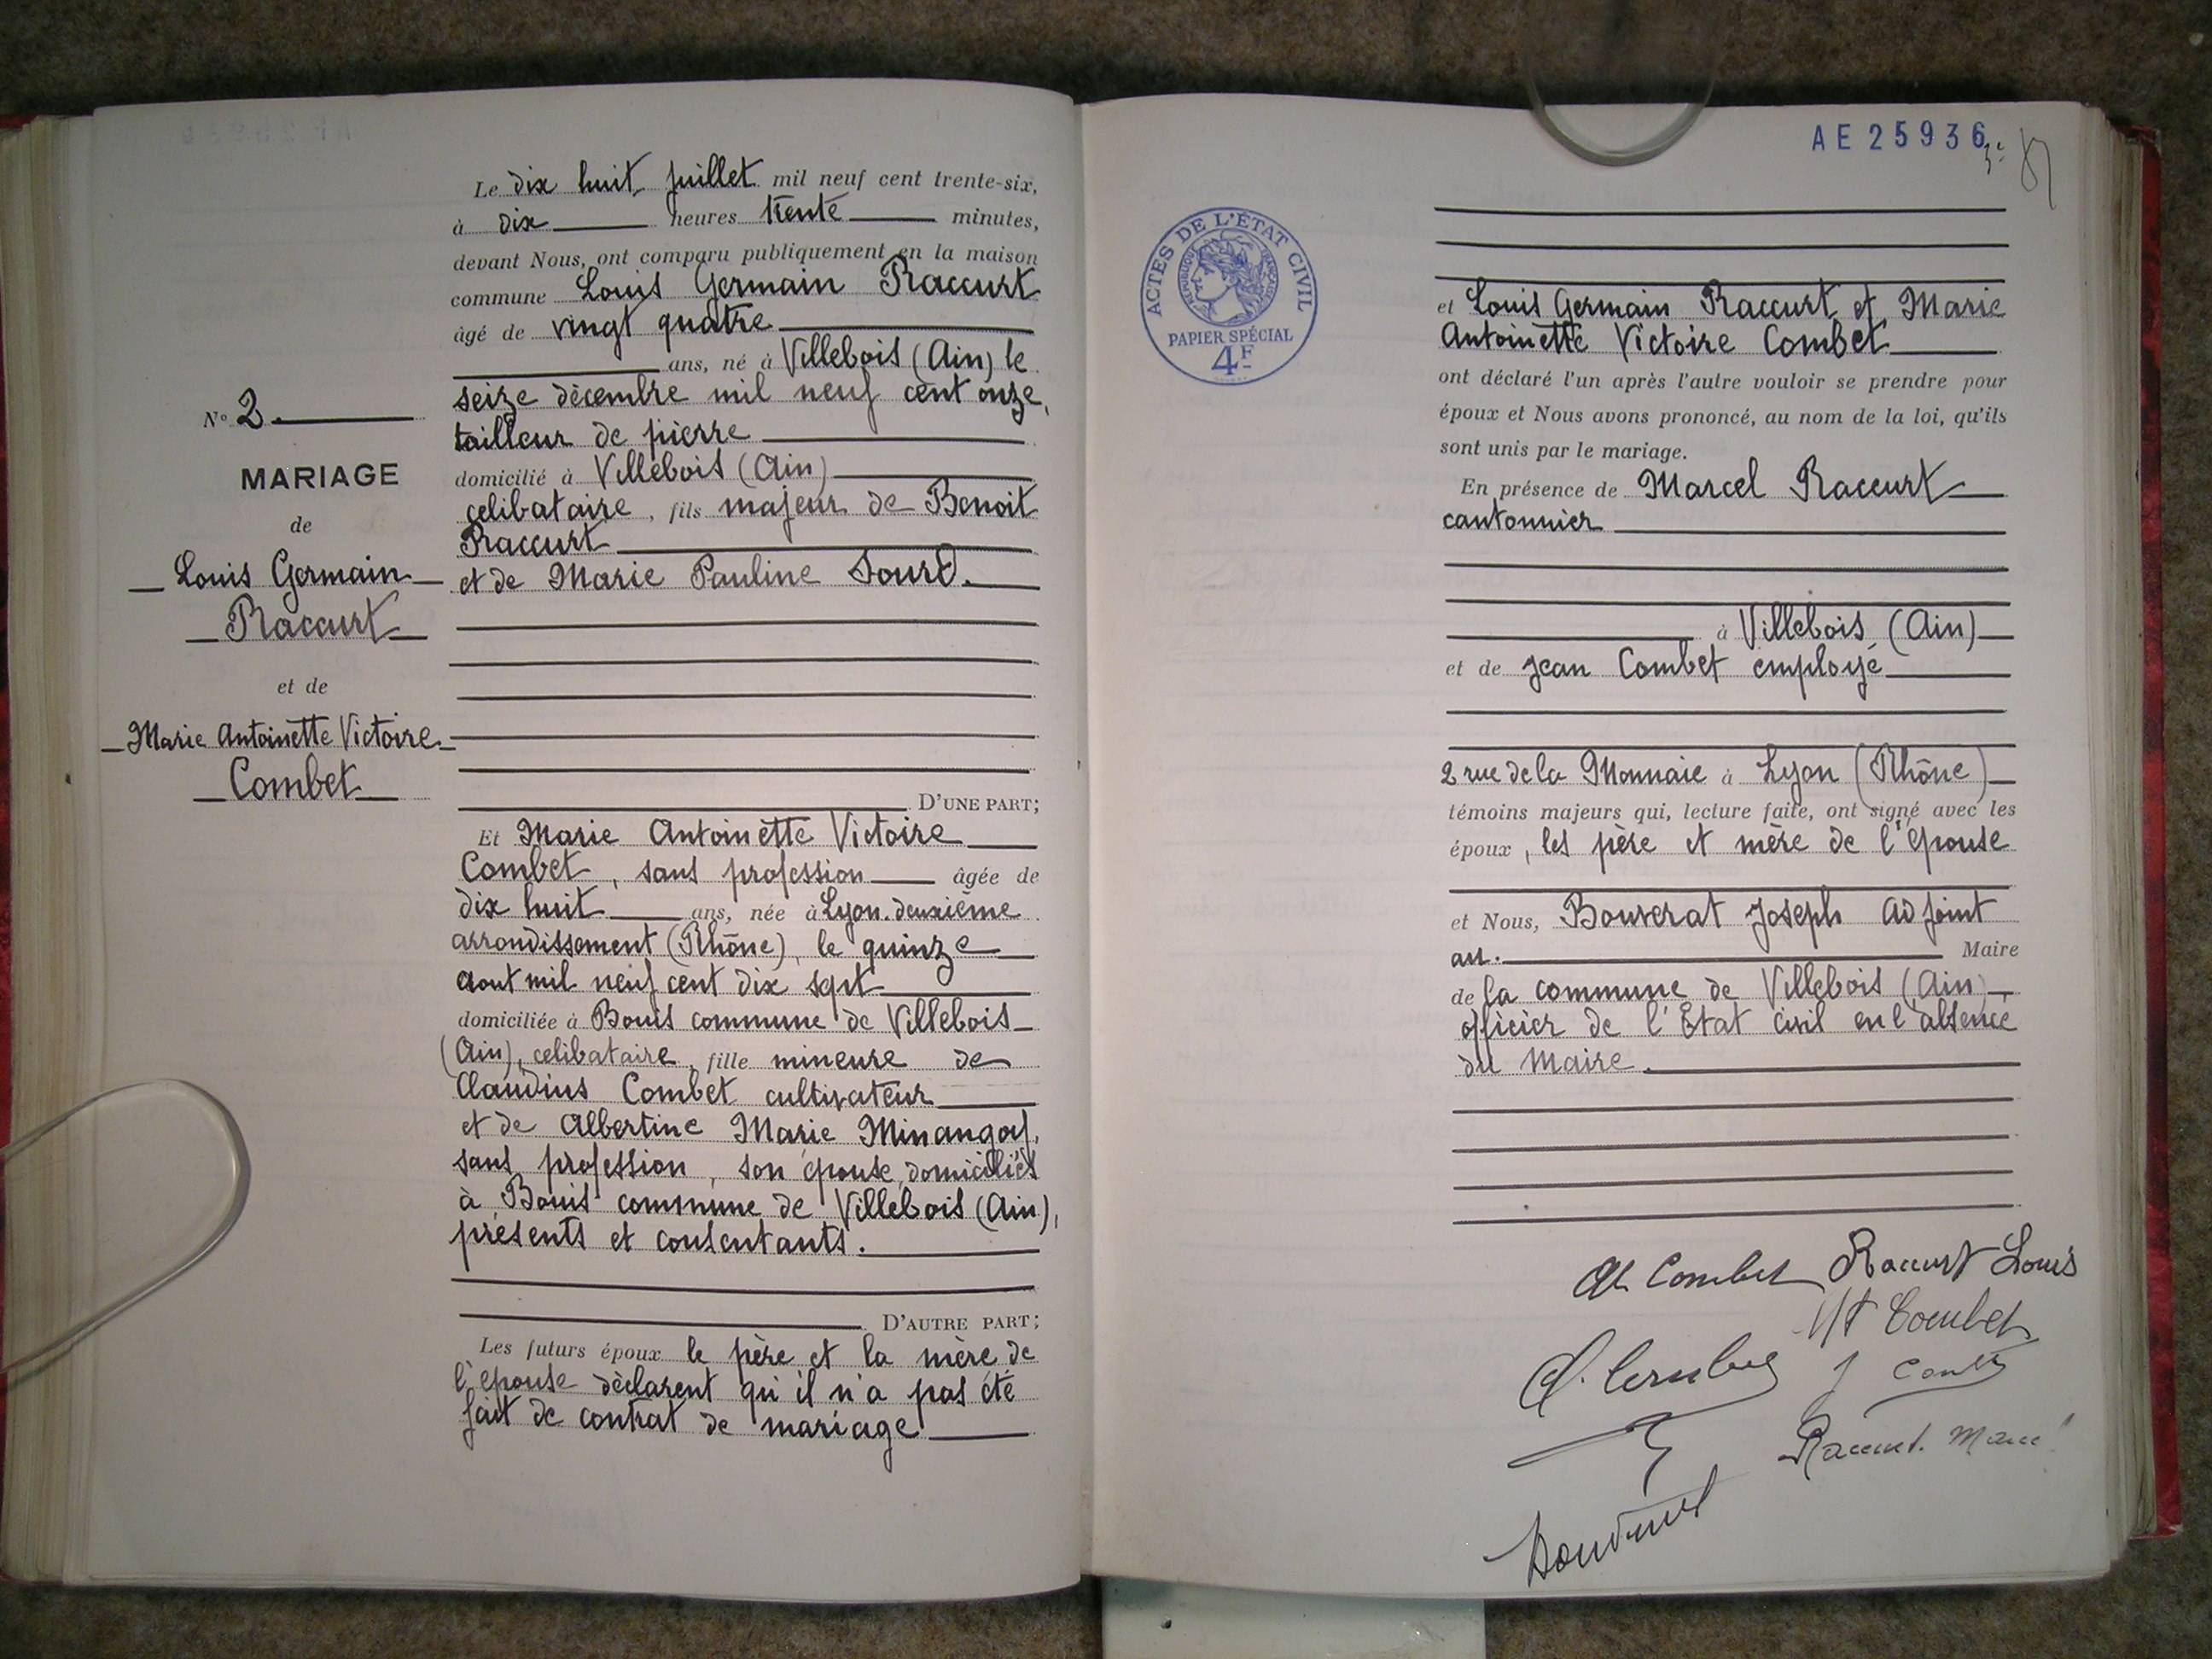 Le dix huit juillet mil neuf cent trente-six,
à dix heures trente minutes,
devant Nous, ont comparu publiquement en la maison
commune Louis Germain Raccurt
âgé de vingt quatre
ans, né à Villebois (Ain) le
seize décembre mil neuf cent onze,
tailleur de pierre
domicilié à Villebois (Ain)
celibataire, fils majeur de Benoit
Raccurt
et de Marie Pauline Sourd.
D'UNE PART;
Et Marie Antoinette Victoire
Combet, sans profession âgée de
dix huit ans, née à Lyon deuxième
arrondissement (Rhône), le quinze
aout mil neuf cent dix sept
domiciliée à Bouis commune de Villebois
(Ain), celibataire, fille mineure de
Claudius Combet cultivateur
et de Albertine Marie Minangoy,
sans profession, son épouse, domiciliés
à Bouis commune de Villebois (Ain),
présents et consentants.
D'AUTRE PART;
Les futurs époux le père et la mère de
l'épouse déclarent qu'il n'a pas été
fait de contrat de mariage
N° 2
MARIAGE
de
Louis Germain
Raccurt
et de
Marie Antoinette Victoire
Combet
AE 25936
ACTES DE L'ÉTAT CIVIL
RÉPUBLIQUE FRANÇAISE
PAPIER SPÉCIAL
4F
et Louis Germain Raccurt et Marie
Antoinette Victoire Combet
ont déclaré l'un après l'autre vouloir se prendre pour
époux et Nous avons prononcé, au nom de la loi, qu'ils
sont unis par le mariage.
En présence de Marcel Raccurt
cantonnier
à Villebois (Ain)
et de Jean Combet employé
2 rue de la Monnaie à Lyon (Rhône)
témoins majeurs qui, lecture faite, ont signé avec les
époux, les père et mère de l'épouse
et Nous, Bouverat Joseph Adjoint
au. Maire
de la commune de Villebois (Ain)
officier de l'Etat civil en l'absence
du Maire.
Combet Raccurt Louis
Combet
Raccurt Marcel